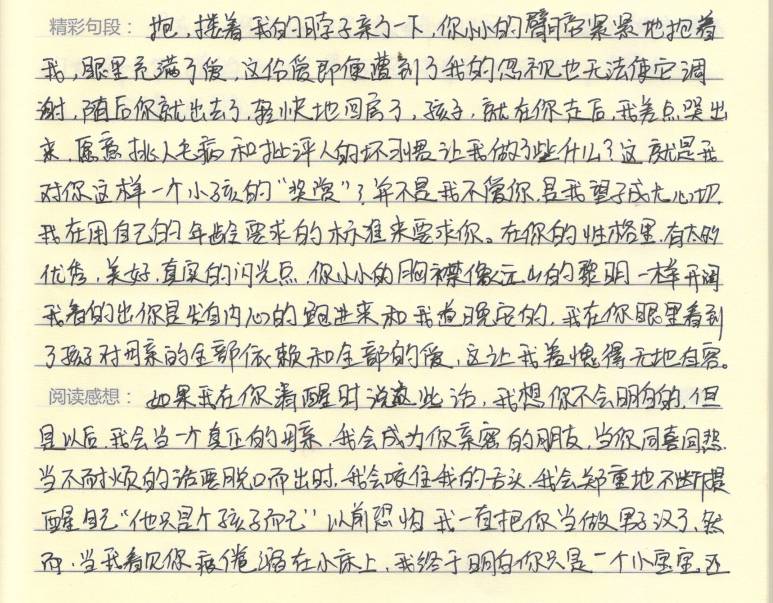 精彩句段：抱，搂着我的脖子亲了一下，你小小的臂膀紧紧地抱着
我，眼里充满了爱，这份爱即便遭到了我的忽视也无法使它凋
谢，随后你就出去了，轻快地回房了，孩子，就在你走后，我差点哭出
来，愿意挑人毛病和批评人的坏习惯让我做了些什么？这就是我
对你这样一个小孩的“奖赏”？并不是我不爱你，是我望子成龙心切，
我在用自己的年龄要求的标准来要求你。在你的性格里，有太多
优秀，美好，真实的闪光点，你小小的胸襟像远山的黎明一样开阔
我看的出你是发自内心的跑进来和我道晚安的，我在你眼里看到
了孩子对母亲的全部依赖和全部的爱，这让我羞愧得无地自容。
阅读感想：如果我在你清醒时说这些话，我想你不会明白的，但
是以后，我会当一个真正的母亲，我会成为你亲密的朋友，当你同喜同愁
当不耐烦的话要脱口而出时，我会咬住我的舌头，我会郑重地不断提
醒自己“他只是个孩子而已”以前恐怕我一直把你当做男子汉了，然
而，当我看见你疲倦溺在小床上，我终于明白你只是一个小宝宝，还